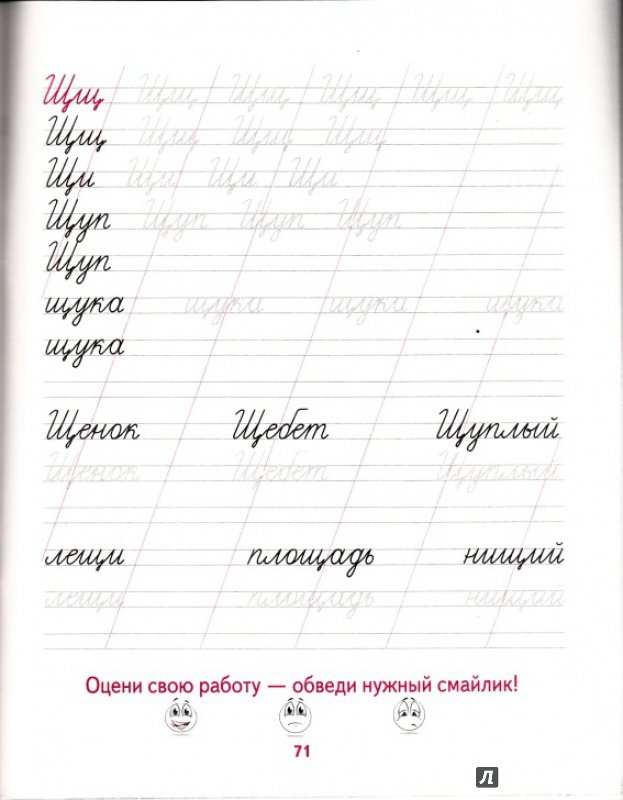 Щщ Щщ Щщ Щщ Щщ Щщ
Щщ Щщ Щщ Щщ
Щи Щи Щи Щи
Щуп Щуп Щуп Щуп
Щуп
щука щука щука щука
щука
Щенок Щебет Щуплый
Щенок Щебет Щуплый
лещи площадь нищий
лещи площадь нищий
Оцени свою работу — обведи нужный смайлик!
71
Л